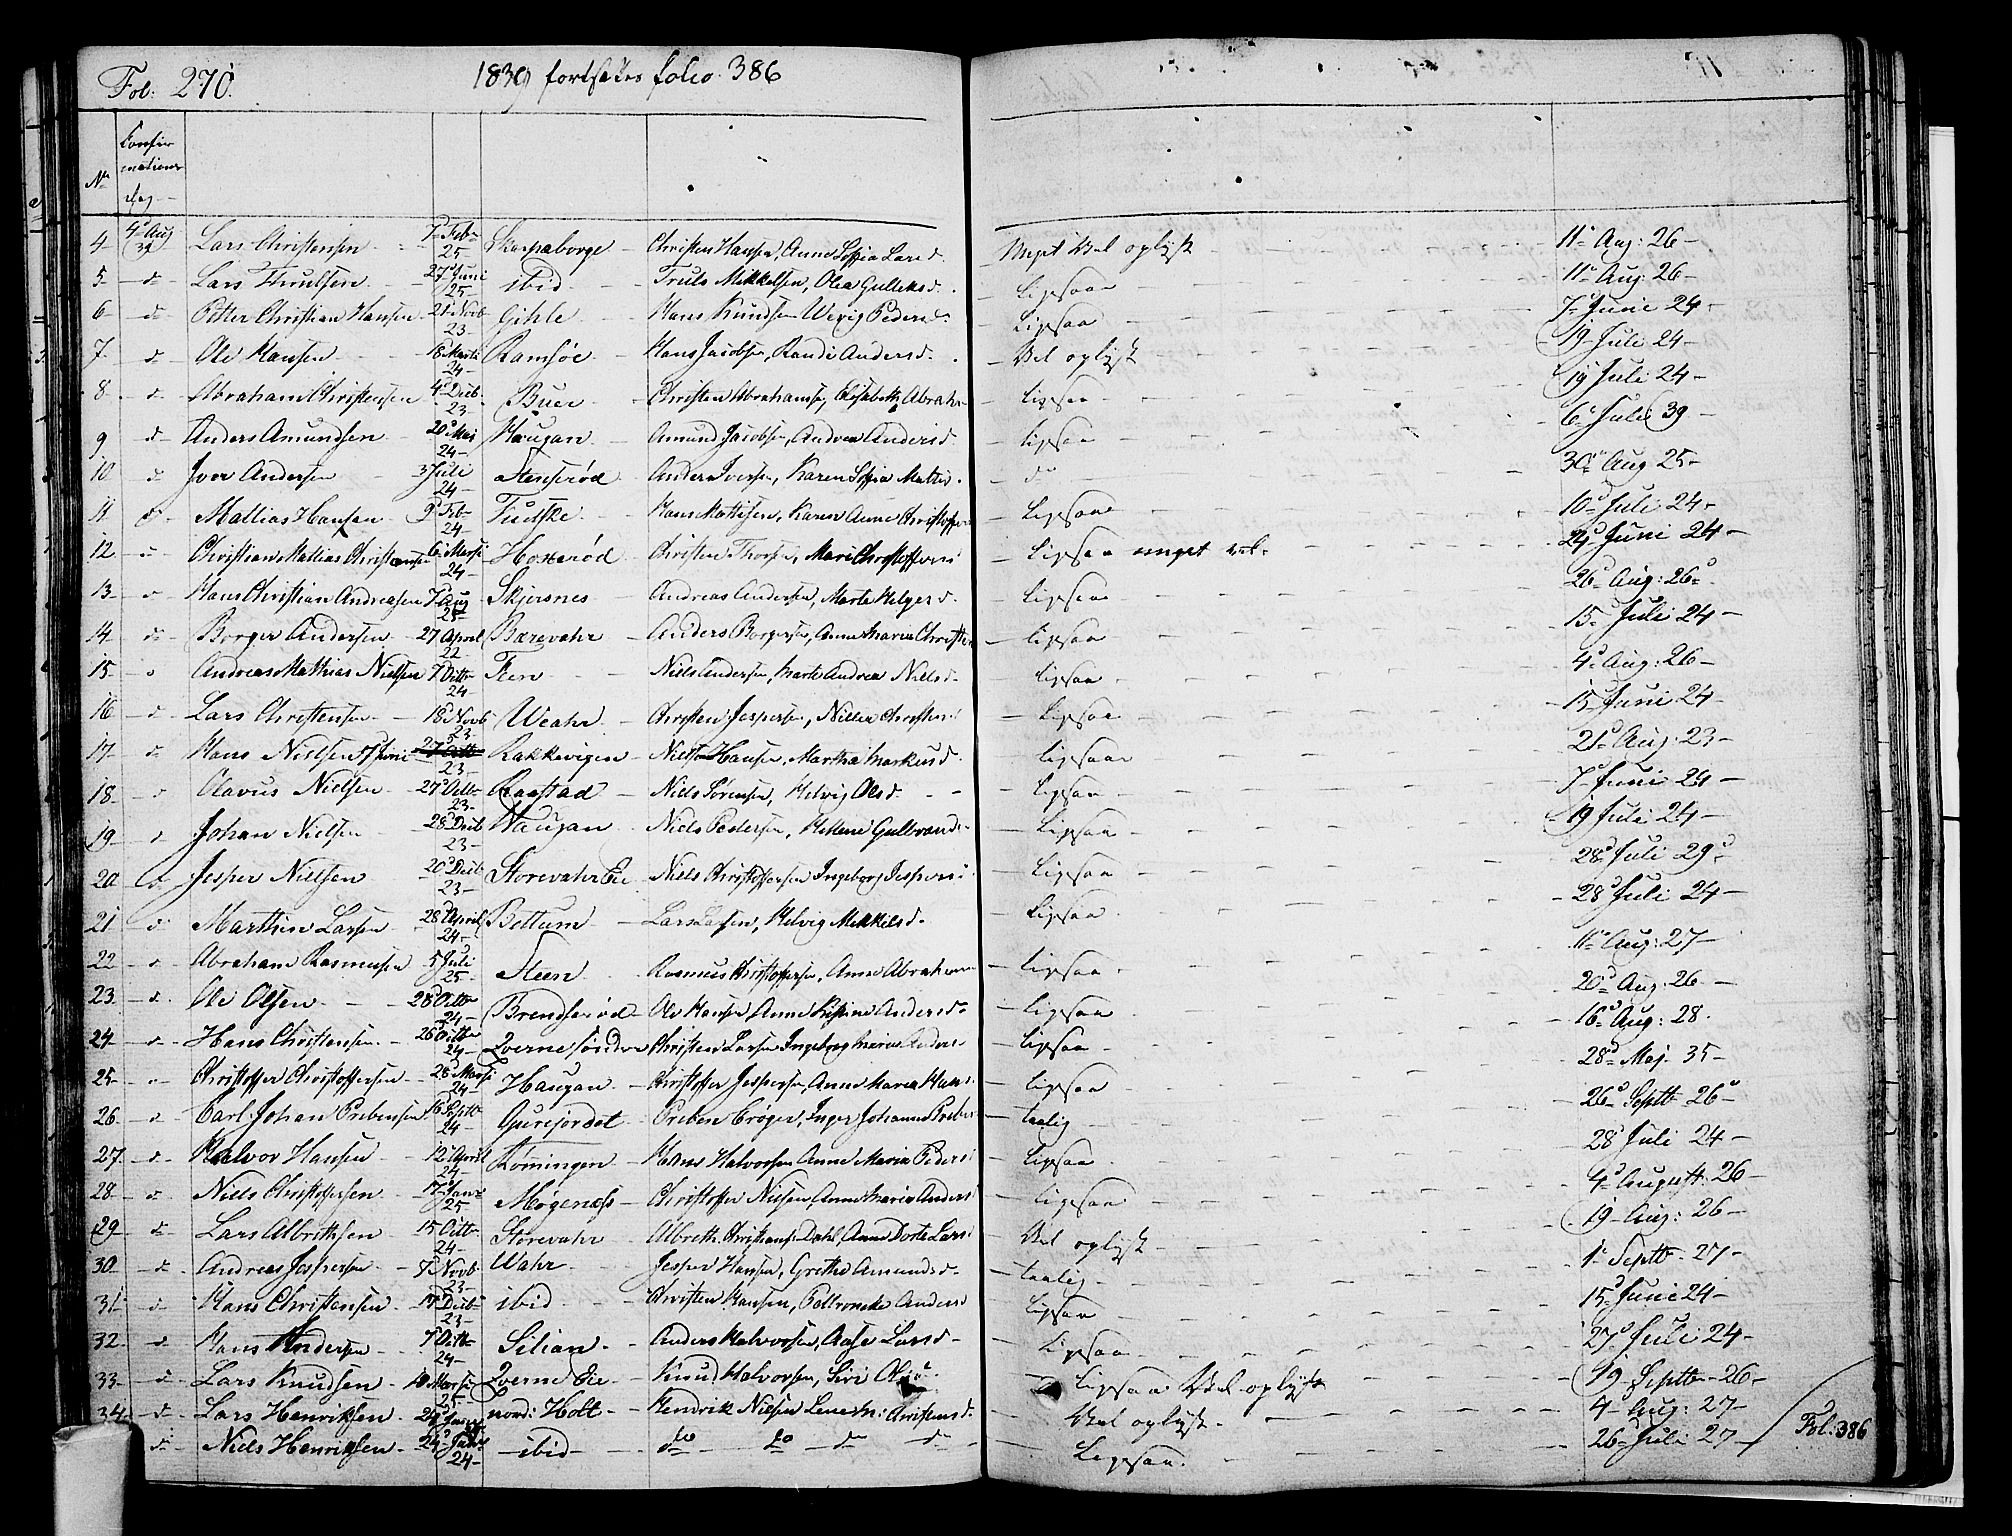 Fol: 270. 1839 fortsættes folio 386
No Confirmations dag
4 4d Aug 39 Lars Christensen 7d Feb 25 Skarpaborge Christen Hansen, Anne Sophia Larsd. Meget Vel oplyst 11d Aug: 26
5 d Lars Trulsen 27d Juni 25 ibid Truls Mikkelsen, Olea Gulliksd. Ligesaa 11d Aug 26
6 d Petter Christian Hansen 21d Novb 23 Gihle Hans Knudsen Wevig Pedersd. Ligesaa 7d Juni 24
7 d Ole Hansen 18d Marti 24 Ramsøe Hans Jacobsen, Randi Andersd. Vel oplyst 19 Juli 24
8 d Abraham Christensen 4d Decb 23 Buer Christen Abrahams, Elisabeth Abrah ligesaa 19 Juli 24
9 d Anders Amundsen 20d Mai 24 Haugan Amund Jacobsen, Andrea Andersd. ligesaa 6d Juli 39
10 d Iver Andersen 3 Juli 24 Stenserød Anders Iversen, Karen Sophia Mattisd. d 30d Aug 25
11 d Mattias Hansen 9d Feb 24 Tudske Hans Mattisen, Karen Anne Christoffers Ligesaa 10d Juli 24
12 d Christian Mattias Christensen 6d Marti 24 Hoxerød Christen Thors, Mari Christoffers Ligesaa meget vel 24d Juni 24
13 d Hans Christian Andreasen 7d Aug 25 Skjersnes Andreas Andersen, Marte Helgesd. Ligesaa 26d Aug: 26
14 d Borger Andersen 27 April 22 Barevahr Anders Borgersen, Anne Maria Christen ligesaa 15 Juli 24
15 d Andreas Mathias Nielsen 7d Octb 24 Feen Niels Andersen, Marte Andrea Nielsd. ligesaa 4d Aug: 26
16 d Lars Christensen 18d Novb 23 Weahr Christen Jespersen, Nillea Christens Ligesaa 15 Juni 24
17 d Hans Nielsen 27 Octb 23 Rakkevigen Niels Hansen, Martha Markusd. ligesaa 21d Aug. 23
18 d Olavus Nielsen 27d Octb 23 Raastad Niels Sørensen, Helvig Olsd Ligesaa 7d Juni 24
19 d Johan Nielsen 28d Decb 23 Haugan Niels Pedersen, Hellene Gulbrands ligesaa 19 Juli 24
20 d Jesper Nielsen 20d Decb 23 Storevahr Eie Niels Christoffersen Ingeborg Jespers Ligesaa 28d Juli 29
21 d Marthin Larsen 28 April 24 Bettum Lars Larsen, Helvig Mikkelsd. Ligesaa 28d Juli 24
22 d Abraham Rasmusen 5d Juli 25 Steen Rasmus Christoffersen, Anne Abraham ligesaa 11d Aug: 27
23 d Ole Olsen 28d Octb 24 Brendserød Ole Hansen Anne Kistine Andersd. ligesaa 20d Aug. 26
24 d Hans Christensen 26d Octb 24 Qverne søndre Christen Larsen Ingeborg Maria Anders ligesaa 16d Aug: 28.
25 d Christoffer Christoffersen 28 Marsi 24 Haugan Christoffer Jespersen, Anne Maria Hans ligesaa 28d Maj 35
26 d Carl Johan Prebensen 16 Septb 24 Gurejordet Preben Crøger, Inger Johanna Preben taalig 26d Septb 26
27 d Halvor Hansen 12d April 24 Rømingen Hans Halvorsen Anne Maria Peders ligesaa 28d Juli 24
28 d Niels Christoffersen 17 Janr 25 Møgenæss Christoffer Nielsen, Anne Maria Anders ligesaa 4d August 26
29 d Lars Albrethsen 15 Octb 24 Storevahr Albreth Christians Dahl, Anne Dorte Lars Vel oplyst 19 Aug: 26
30 d Andreas Jespersen 7 Novb 23 Wahr Jesper Hansen, Grethe Amundsd. taalig 1d Septb 27
31 d Hans Christensen 17 Decb 23 ibid Christen Hansen, Pettronelle Anders ligesaa 15d Juni 24
32 d Hans Andersen 7d Octb 24 Silian Anders Halvorsen, Aase Larsd. Ligesaa 27d Juli 24
33 d Lars Knudsen 10 Marsi 25 Qverne Eie Knud Halvorsen, Siri Ols Ligesaa Vel oplyst 19 Septb 26
34 d Lars Henriksen 24d Janr 24 nord: Holt Hendrik Nielsen Lene M: Christensd. Vel oplyst 4 Aug: 27
d Niels Henriksen 24d Janr 24 ibid do do do d Ligesaa. 26d Juli 27 Fol: 386